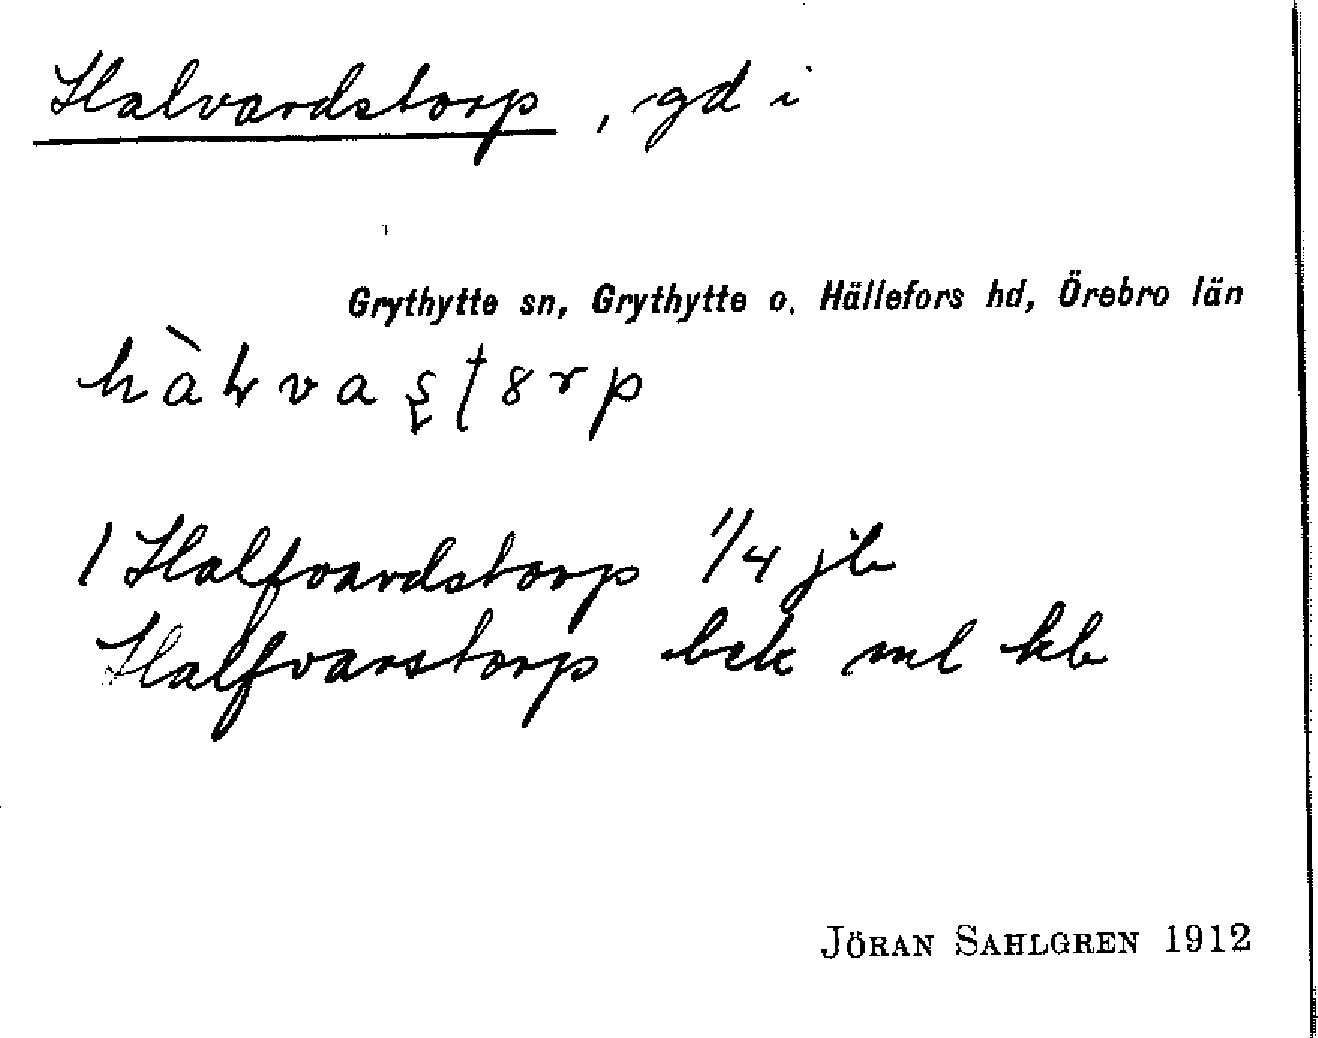 Halvardstorp, gd i
Grythytte sn, Grythytte o. Hällefors hd, Örebro län
1 Halfvardstorp 1/4 jb
Halfvarstorp bek ml kb
JÖRAN SAHLGREN 1912